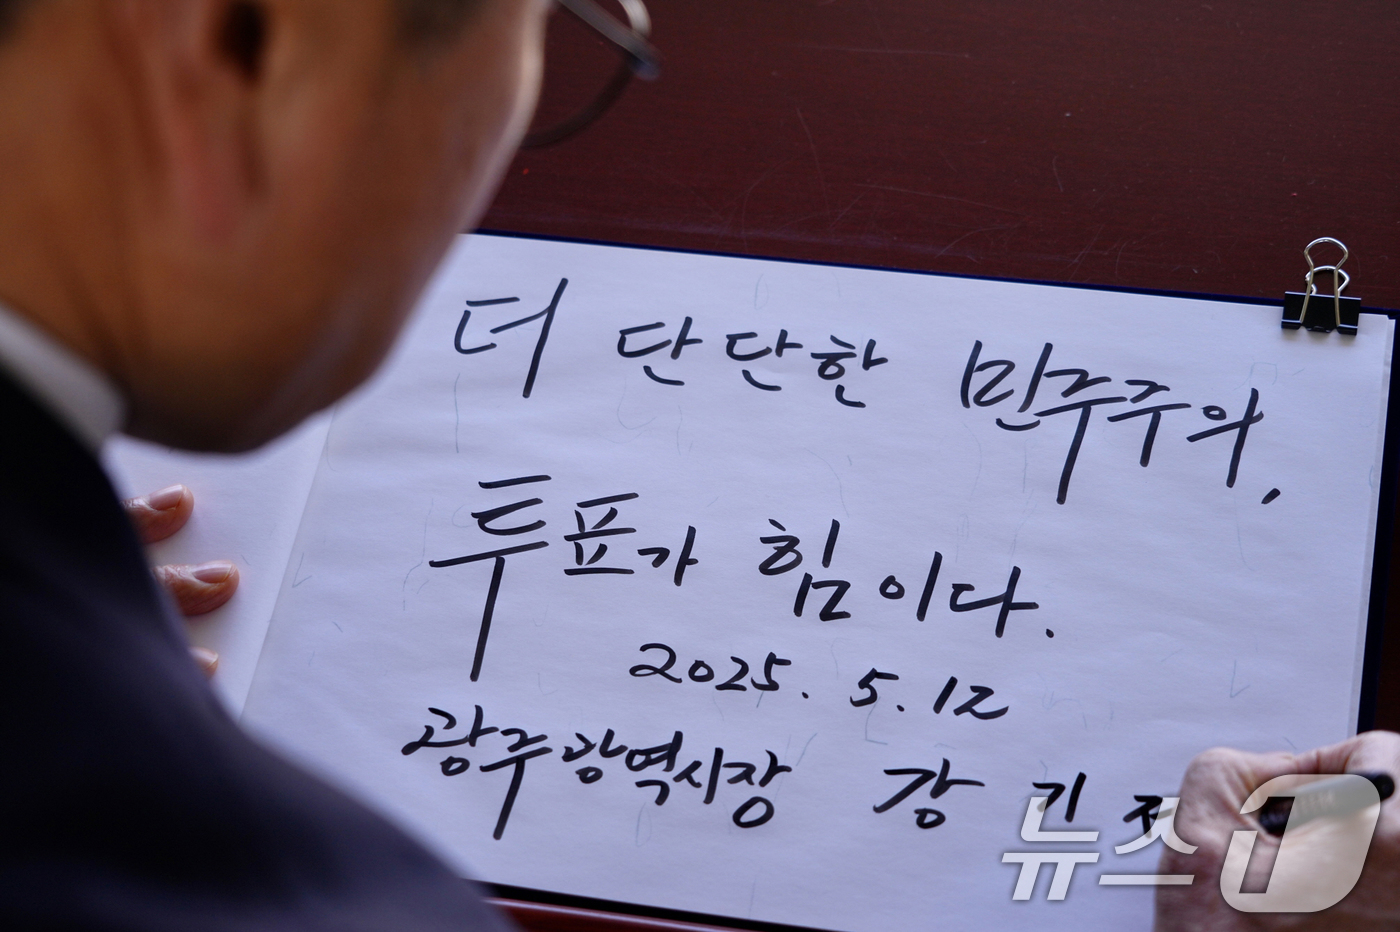 더 단단한 민주주의,
투표가 힘이다.
2025. 5. 12
광주광역시장 강 기 저
뉴스1